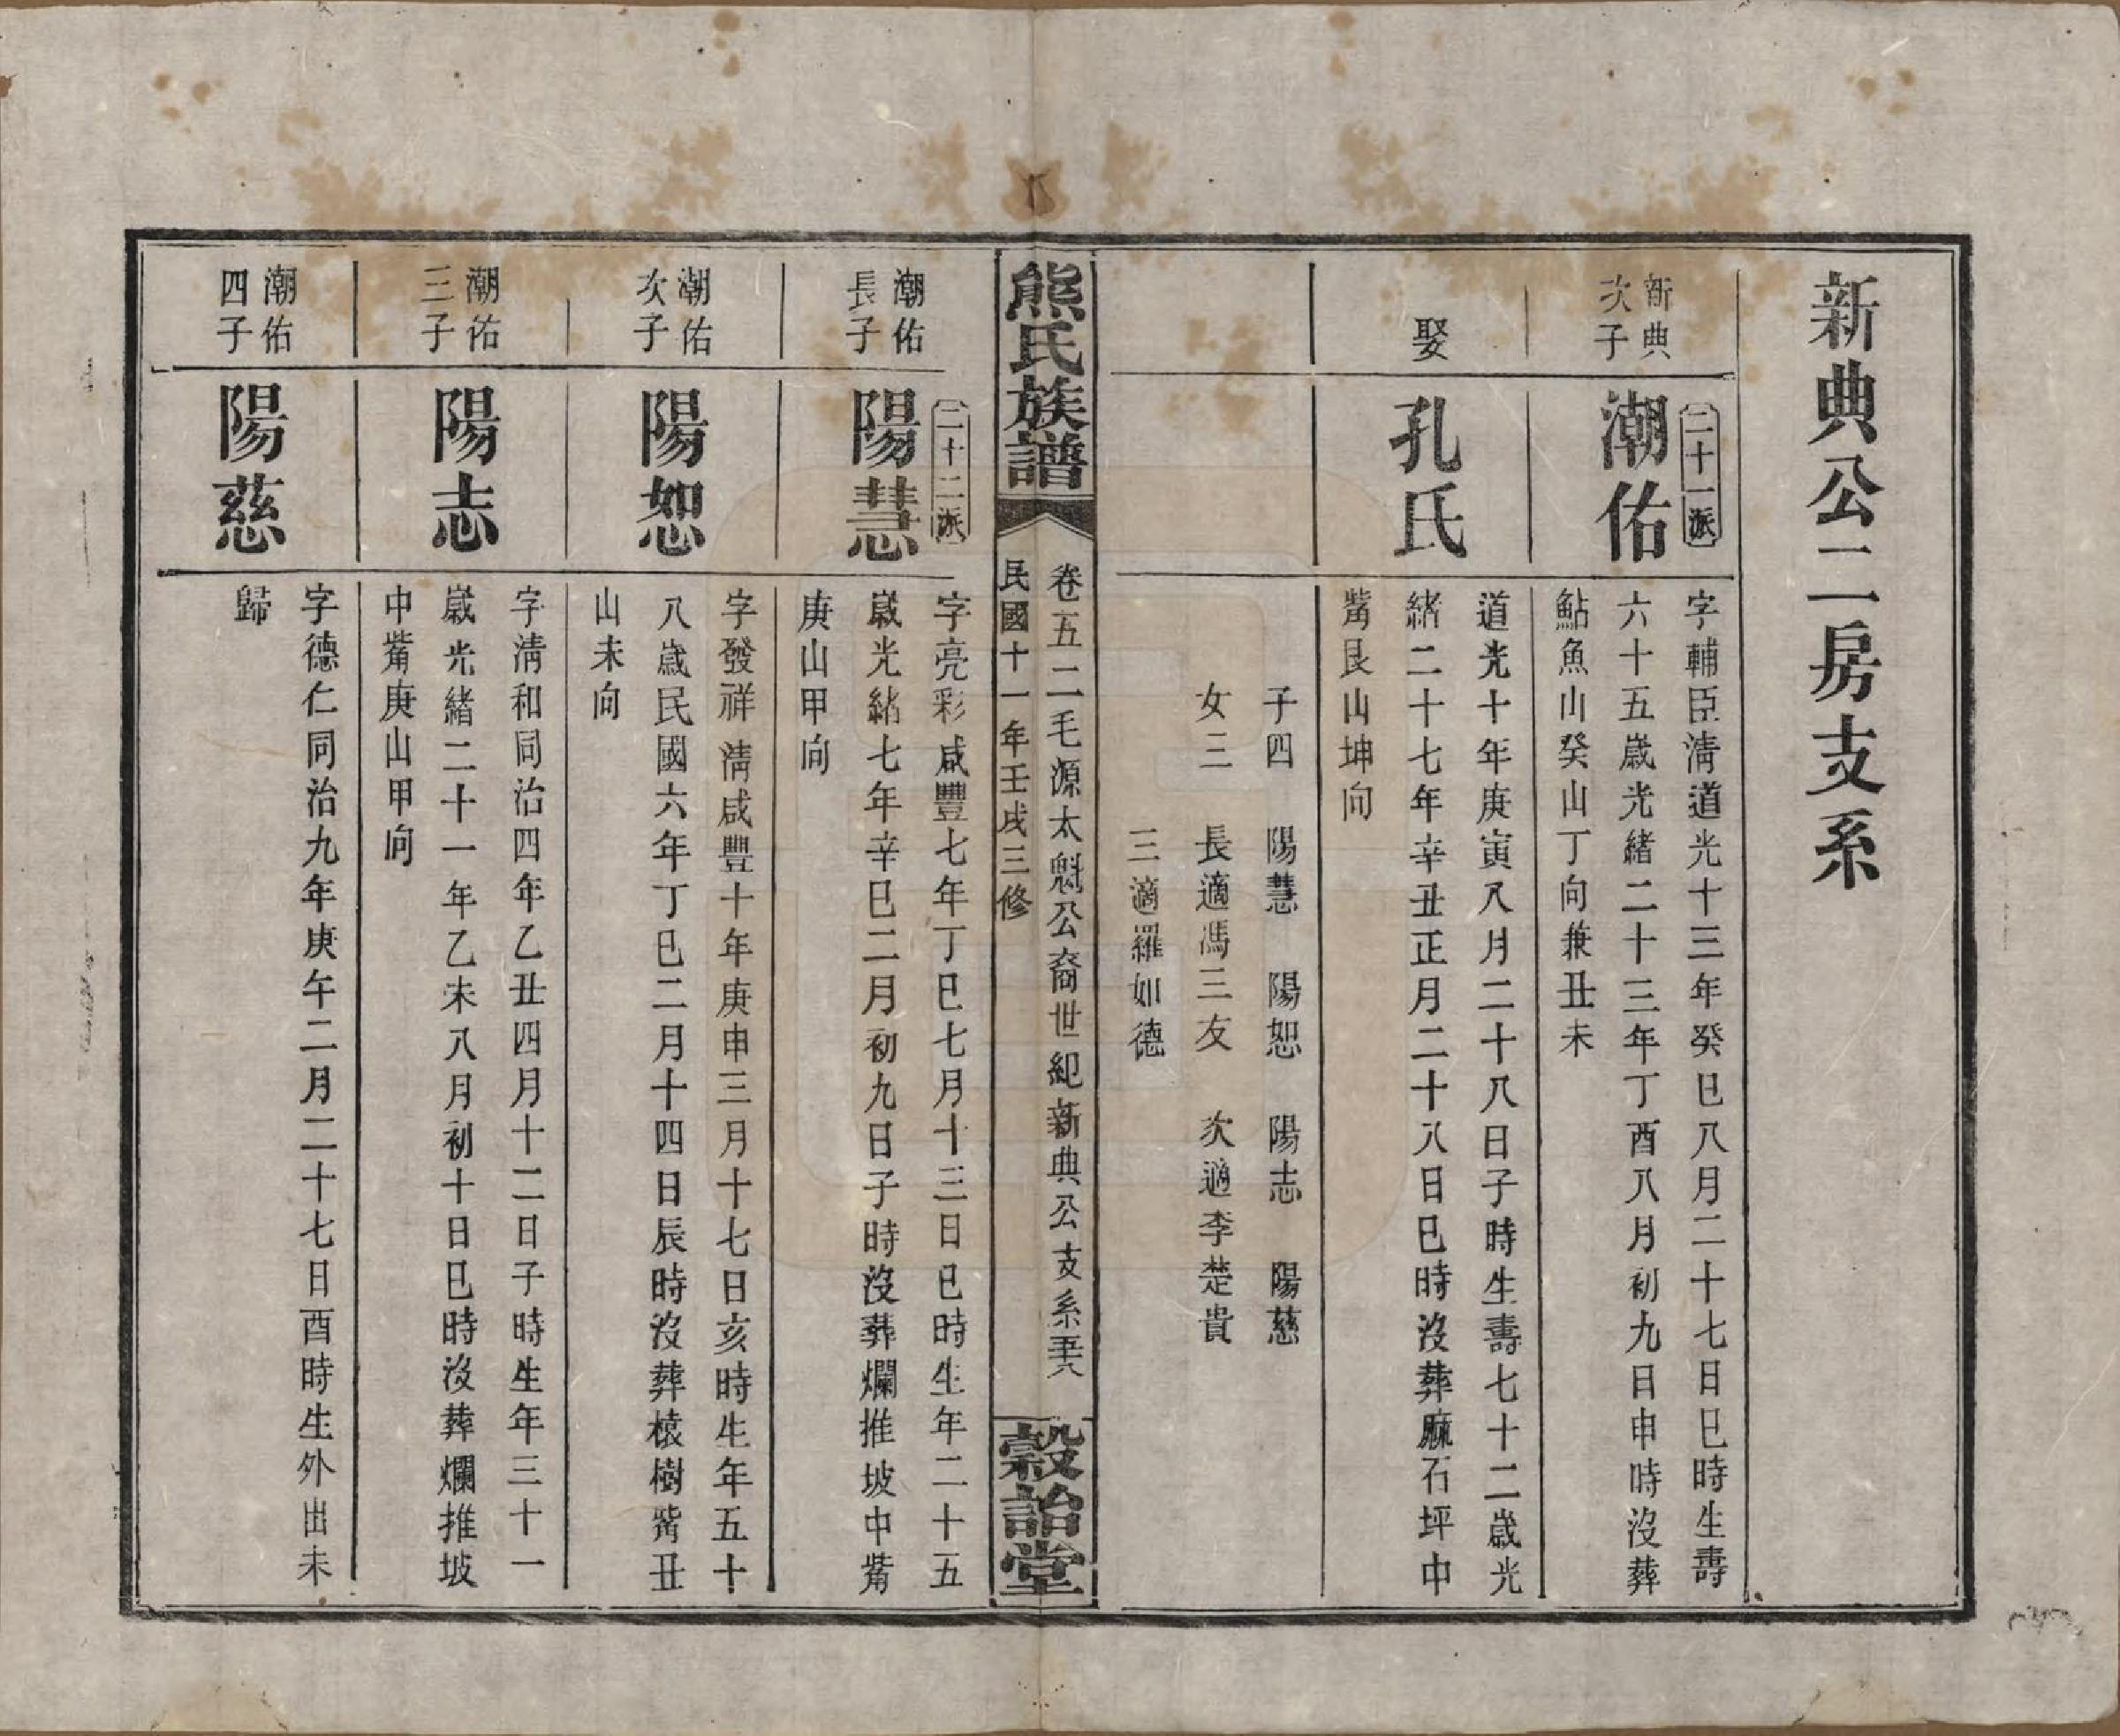 新典公二房支系
新典
次子
二十一派
潮佑
字輔臣淸道光十三年癸巳八月二十七日巳時生壽
六十五歲光緖二十三年丁酉八月初九日申時沒葬
鮎魚山癸山丁向兼丑未
娶
孔氏
道光十年庚寅八月二十八日子時生壽七十二歲光
緖二十七年辛丑正月二十八日巳時沒葬麻石坪中
嘴艮山坤向
子四　陽慧　陽恕　陽志　陽慈
女三　長適馮三友　次適李楚貴
三適羅如德
熊氏族譜
卷五二毛源太魁公裔世紀新典公支系五六
民國十一年壬戌三修
穀詒堂
潮佑
長子
二十二派
陽慧
字亮彩咸豐七年丁巳七月十三日巳時生年二十五
歲光緖七年辛巳二月初九日子時沒葬爛推坡中嘴
庚山甲向
潮佑
次子
陽恕
字發祥淸咸豐十年庚申三月十七日亥時生年五十
八歲民國六年丁巳二月十四日辰時沒葬榬樹嘴丑
山未向
潮佑
三子
陽志
字淸和同治四年乙丑四月十二日子時生年三十一
歲光緖二十一年乙未八月初十日巳時沒葬爛推坡
中嘴庚山甲向
潮佑
四子
陽慈
字德仁同治九年庚午二月二十七日酉時生外出未
歸